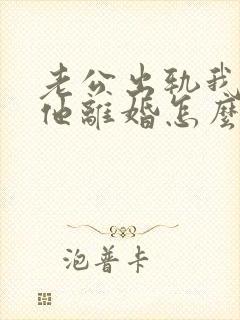 老公出軌我
他離婚怎麼
泡普卡